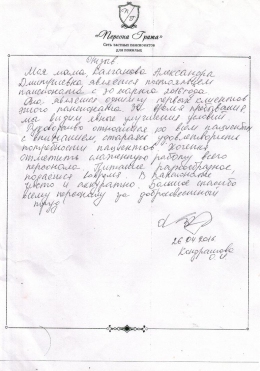 «Персона Грата»
Сеть частных пансионатов
для пожилых
Отзыв
Моя мама Калмакова Александра
Дмитриевна является
пансионата с 30 марта 2016 года
Она является одним из первых клиентов
этого пансионата. За время пребывания
мы видим явное улучшение условий
Руководство относится ко всем пациентам
с вниманием, стараясь удовлетворить
потребности пациентов. Хочется
отметить слаженную работу всего
персонала. Питание разнообразное,
подается вовремя. В пансионате
чисто и аккуратно. Большое спасибо
всему персоналу за добросовестный
труд
26.04.2016
Кондрашова